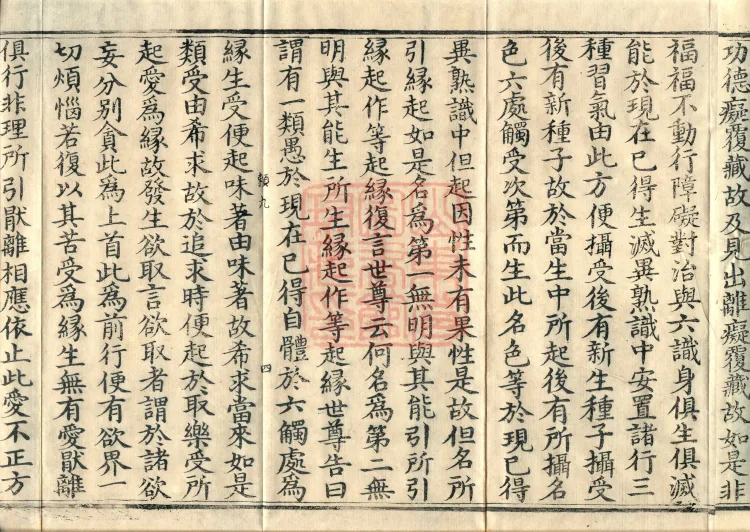 功德癡覆藏故及見出離癡覆藏故如是非
福福不動行障礙對治與六識身俱生俱滅
能於現在已得生滅異熟識中安置諸行三
種習氣由此方便攝受後有新生種子攝受
後有新種子故於當生中所起後有所攝名
色六處觸受次第而生此名色等於現已得
異熟識中但起因性未有果性是故但名所
引緣起如是名為第一無明與其能引所引
緣起作等起緣復言世尊云何名為第二無
明與其能生所生緣起作等起緣世尊告曰
謂有一類愚於現在已得自體於六觸處為
緣生受便起味著由味著故希求當來如是
類受由希求故於追求時便起於取樂受所
起愛為緣故發生欲取言欲取者謂於諸欲
妄分別貪此為上首此為前行便有欲界一
切煩惱若復以其苦受為緣生無有愛猒離
俱行非理所引猒離相應依止此愛不正方
四